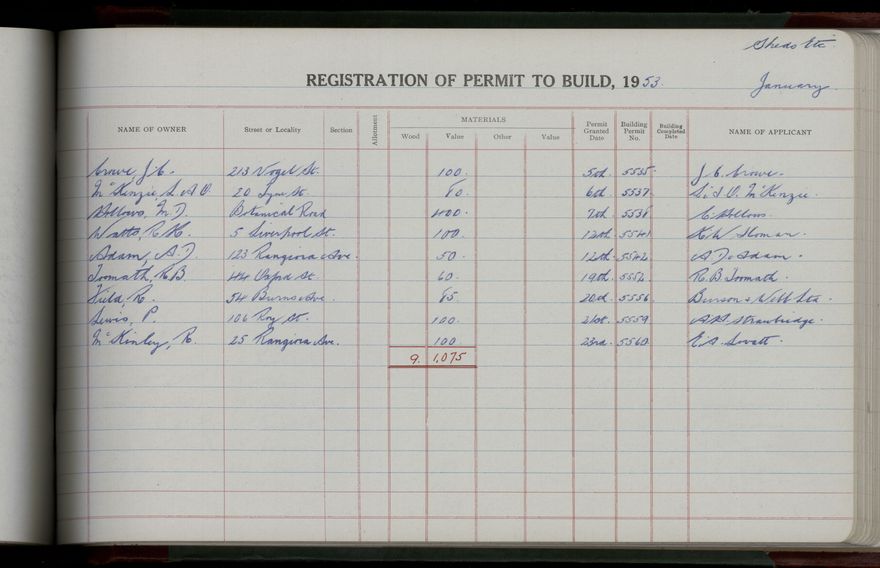 Sheds Etc.
REGISTRATION OF PERMIT TO BUILD, 1953.
January.
NAME OF OWNER Street or Locality Section Allotment MATERIALS Permit Granted Date Building Permit No. Building Completed Date NAME OF APPLICANT
Wood Value Other Value
Crowe, J.C. 213 Vogel St. 100. 5th. 5535. J.C. Crowe.
McKenzie, 20 80. 6th. 5537. McKenzie.
Hollows, M.D. Botanical Road 400. 7th. 5538. Hollows.
Watts, R.H. 5 Liverpool St. 100. 12th. 5541. K.W. Homan.
Adam, A.D. 123 Rangiora Ave. 50. 12th. 5542. A.D. Adam.
Toomath, R.B. 44 Oxford St. 60. 19th. 5552. R.B. Toomath.
Field, R. 54 Burns Ave 85. 20th. 5556. Benson & Webb Ltd.
Lewis, P. 106 Roy St. 100. 21st. 5559. Strawbridge.
McKinley, R. 25 Rangiora Ave. 100 23rd. 5560. E.A.
9. 1,075